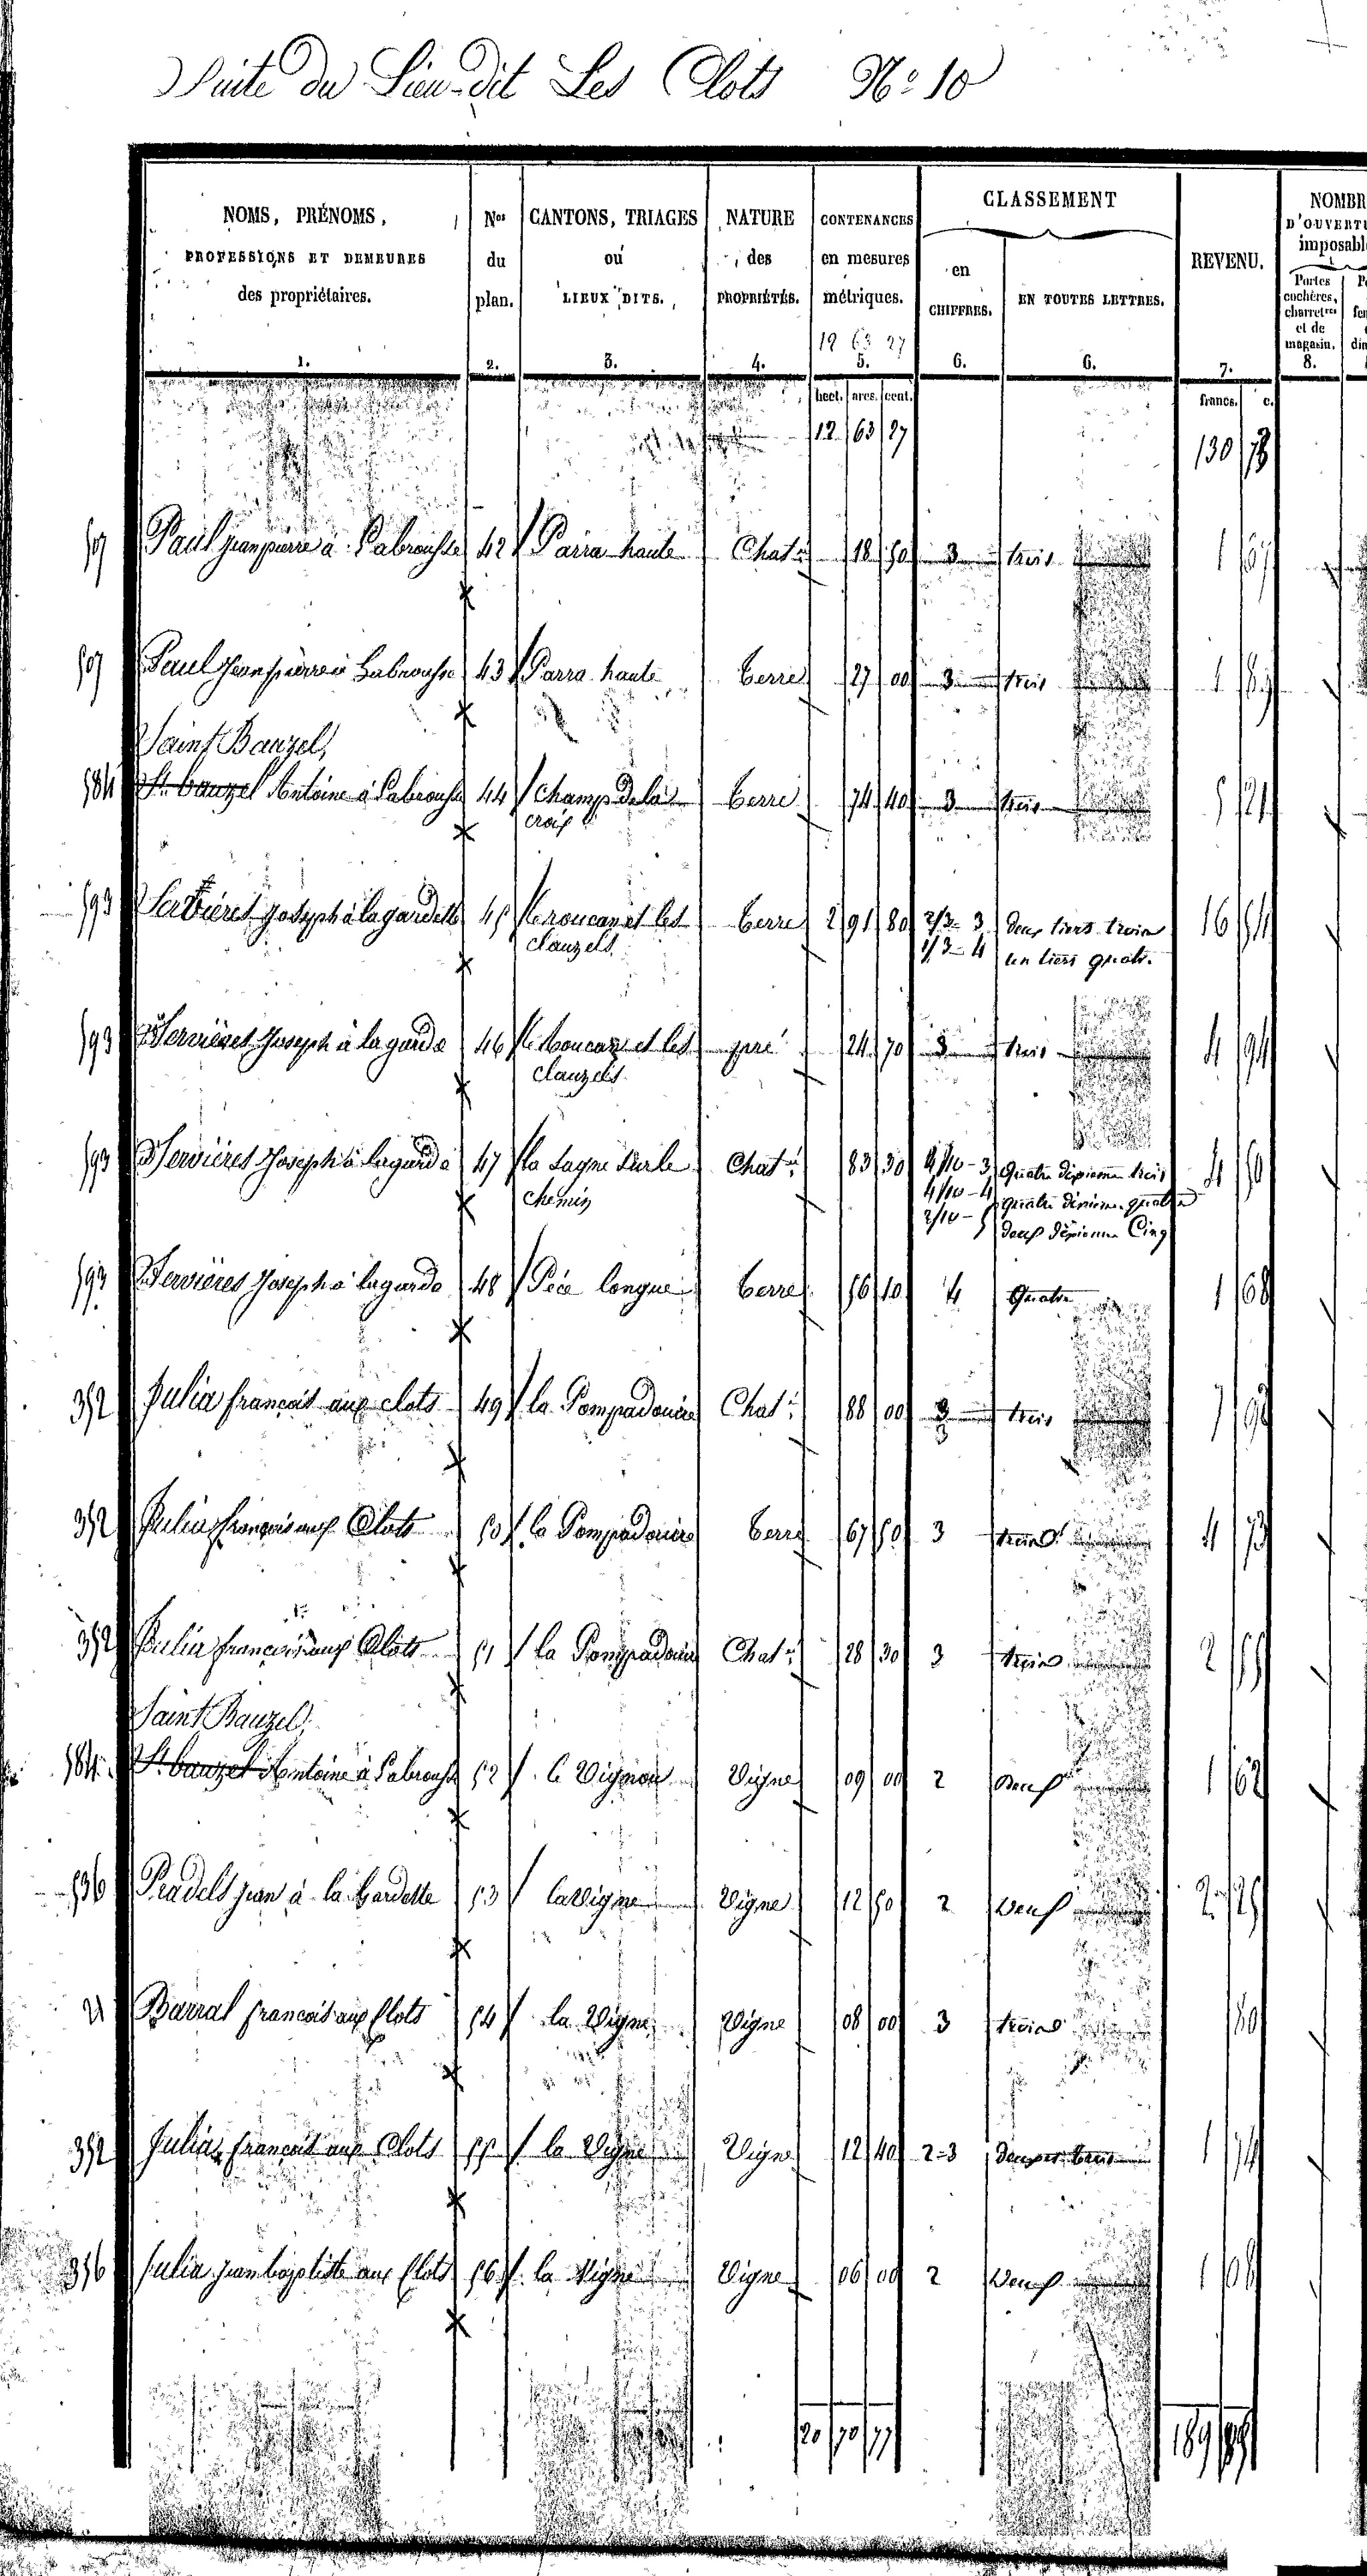 Suite du Lieu-dit Les Clots N.º 10
NOMS, PRÉNOMS, PROFESSIONS ET DEMEURES des propriétaires. 1.
Nos du plan. 2.
CANTONS, TRIAGES ou LIEUX DITS. 3.
NATURE des PROPRIÉTÉS. 4.
CONTENANCES en mesures métriques. 12 63 27 5.
CLASSEMENT
en CHIFFRES. 6.
EN TOUTES LETTRES. 6.
REVENU. 7.
NOMBR
D'OUVERTU
imposabl
Portes cochères, charretres et de magasin. 8.
hect. ares. cent.
francs. c.
12 63 27 130 78
507 Paul jean pierre à Labrousse 42 Parra haute Chat.r 18 50 3 trois 1 67
507 Paul Jean pierre à Labrousse 43 Parra haute terre 27 00 3 trois 1 89
Saint Bauzel,
584 St. bauzel Antoine à Labrousse 44 champ de la terre 74 40 3 trois 5 21
croix
593 Servières Joseph à la gardelle 45 le roucan et les terre 2 91 80 2/3- 3 deux tiers trois 16 54
clauzels 1/3- 4 un tiers quatr.
593 Servières Joseph à la garde 46 le Roucan et les pré 24 70 3 trois 4 94
clauzels.
593 Servières Joseph à la garde 47 la sagne sur le Chat.r 83 30 4/10 - 3 Quatre dixieme trois 4 50
chemin 4/10 - 4 quatre dixieme quatre
2/10 - 5 deux dixieme Cinq
593 Servières Joseph à la garde 48 Pèce longue terre 56 10 4 Quatre 1 68
352 Julia francois aux clots 49 la Pompadouire Chat.r 88 00 3 trois 7 92
352 Julia françois aux Clots 50 la Pompadouire terre 67 50 3 trois 4 73
352 Julia francois aux Clots 51 la Pompadouire Chat.r 28 30 3 trois 2 55
Saint Bauzel,
584. St. bauzel Antoine à Labrousse 52 le Vignou Vigne 09 00 2 Deux 1 62
536 Pradels jean à la Gardelle 53 la Vigne Vigne 12 50 2 Deux 2 25
21 Barral francois aux Clots 54 la Vigne Vigne 08 00 3 trois 80
352 Julia francois aux Clots 55 la Vigne Vigne 12 40 2=3 deux et trois 1 74
356 Julia jean baptiste aux Clots 56 la Vigne Vigne 06 00 2 Deux 1 08
20 70 77 189 99